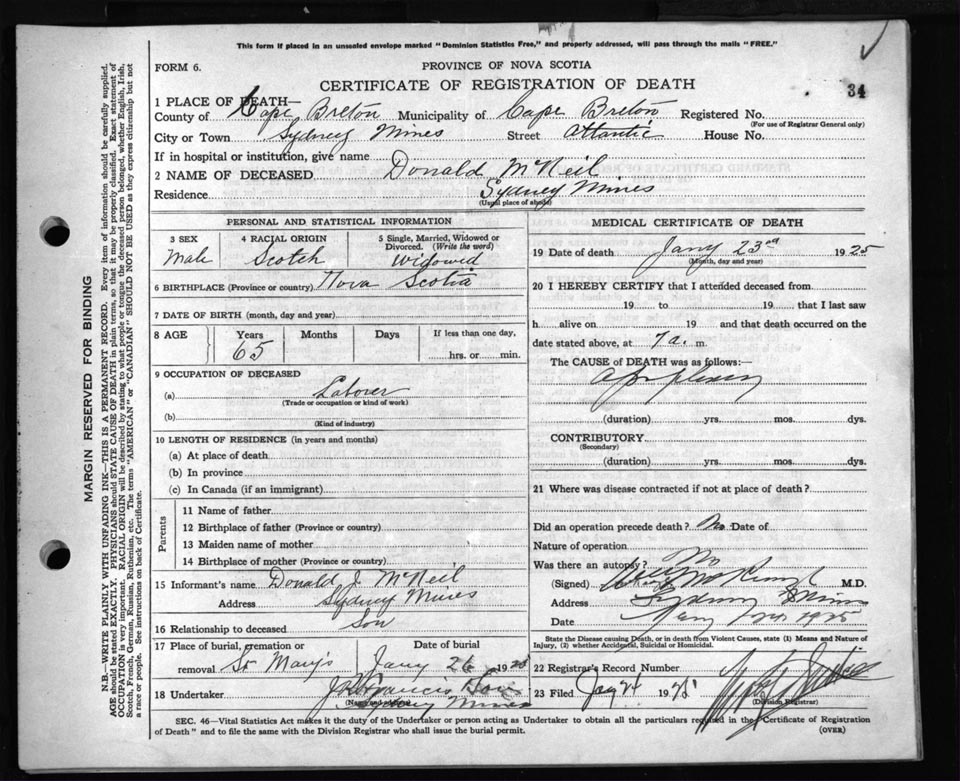 This form if placed in an unsealed envelope marked "Dominion Statistics Free," and properly addressed, will pass through the mails "FREE."
FORM 6.
PROVINCE OF NOVA SCOTIA
CERTIFICATE OF REGISTRATION OF DEATH
34
1 PLACE OF DEATH—
County of Cape Breton Municipality of Cape Breton Registered No.
(For use of Registrar General only)
City or Town Sydney Mines Street Atlantic House No.
If in hospital or institution, give name
2 NAME OF DECEASED Donald McNeil
Residence Sydney Mines
(Usual place of abode)
PERSONAL AND STATISTICAL INFORMATION
3 SEX Male
4 RACIAL ORIGIN Scotch
5 Single, Married, Widowed or Divorced. (Write the word) Widowed
6 BIRTHPLACE (Province or country) Nova Scotia
7 DATE OF BIRTH (month, day and year)
8 AGE Years Months Days If less than one day,
65 hrs. or min.
9 OCCUPATION OF DECEASED
(a) Laborer
(Trade or occupation or kind of work)
(b)
(Kind of industry)
10 LENGTH OF RESIDENCE (in years and months)
(a) At place of death
(b) In province
(c) In Canada (if an immigrant)
Parents
11 Name of father
12 Birthplace of father (Province or country)
13 Maiden name of mother
14 Birthplace of mother (Province or country)
15 Informant's name Donald J. McNeil
Address Sydney Mines
16 Relationship to deceased Son
17 Place of burial, cremation or removal St Mary's
Date of burial
Jany 26 1925
18 Undertaker
(Name and address)
Sydney Mines
MEDICAL CERTIFICATE OF DEATH
19 Date of death Jany 23rd 1925
(Month, day and year)
20 I HEREBY CERTIFY that I attended deceased from
19 to 19 that I last saw
h alive on 19 and that death occurred on the
date stated above, at 7 a. m.
The CAUSE of DEATH was as follows:—
Apoplexy
(duration) yrs. mos. dys.
CONTRIBUTORY
(Secondary)
(duration) yrs. mos. dys.
21 Where was disease contracted if not at place of death?
Did an operation precede death? No Date of
Nature of operation
Was there an autopsy? No
(Signed) M.D.
Address Sydney Mines
Date
State the Disease causing Death, or in death from Violent Causes, state (1) Means and Nature of
Injury, (2) whether Accidental, Suicidal or Homicidal.
22 Registrar's Record Number
23 Filed
(Division Registrar)
SEC. 46—Vital Statistics Act makes it the duty of the Undertaker or person acting as Undertaker to obtain all the particulars required in the Certificate of Registration
of Death" and to file the same with the Division Registrar who shall issue the burial permit.
(OVER)
MARGIN RESERVED FOR BINDING
N.B.—WRITE PLAINLY WITH UNFADING INK—THIS IS A PERMANENT RECORD. Every item of information should be carefully supplied.
AGE should be stated EXACTLY. PHYSICIANS should STATE CAUSE OF DEATH in plain terms, so that it may be properly classified. Exact statement of
OCCUPATION is very important. RACIAL ORIGIN will be described by stating to what people or tongue the deceased person belonged, whether English, Irish,
Scotch, French, German, Russian, Ruthenian, etc. The terms "AMERICAN" or "CANADIAN" SHOULD NOT BE USED as they express citizenship but not
a race or people. See instructions on back of Certificate.